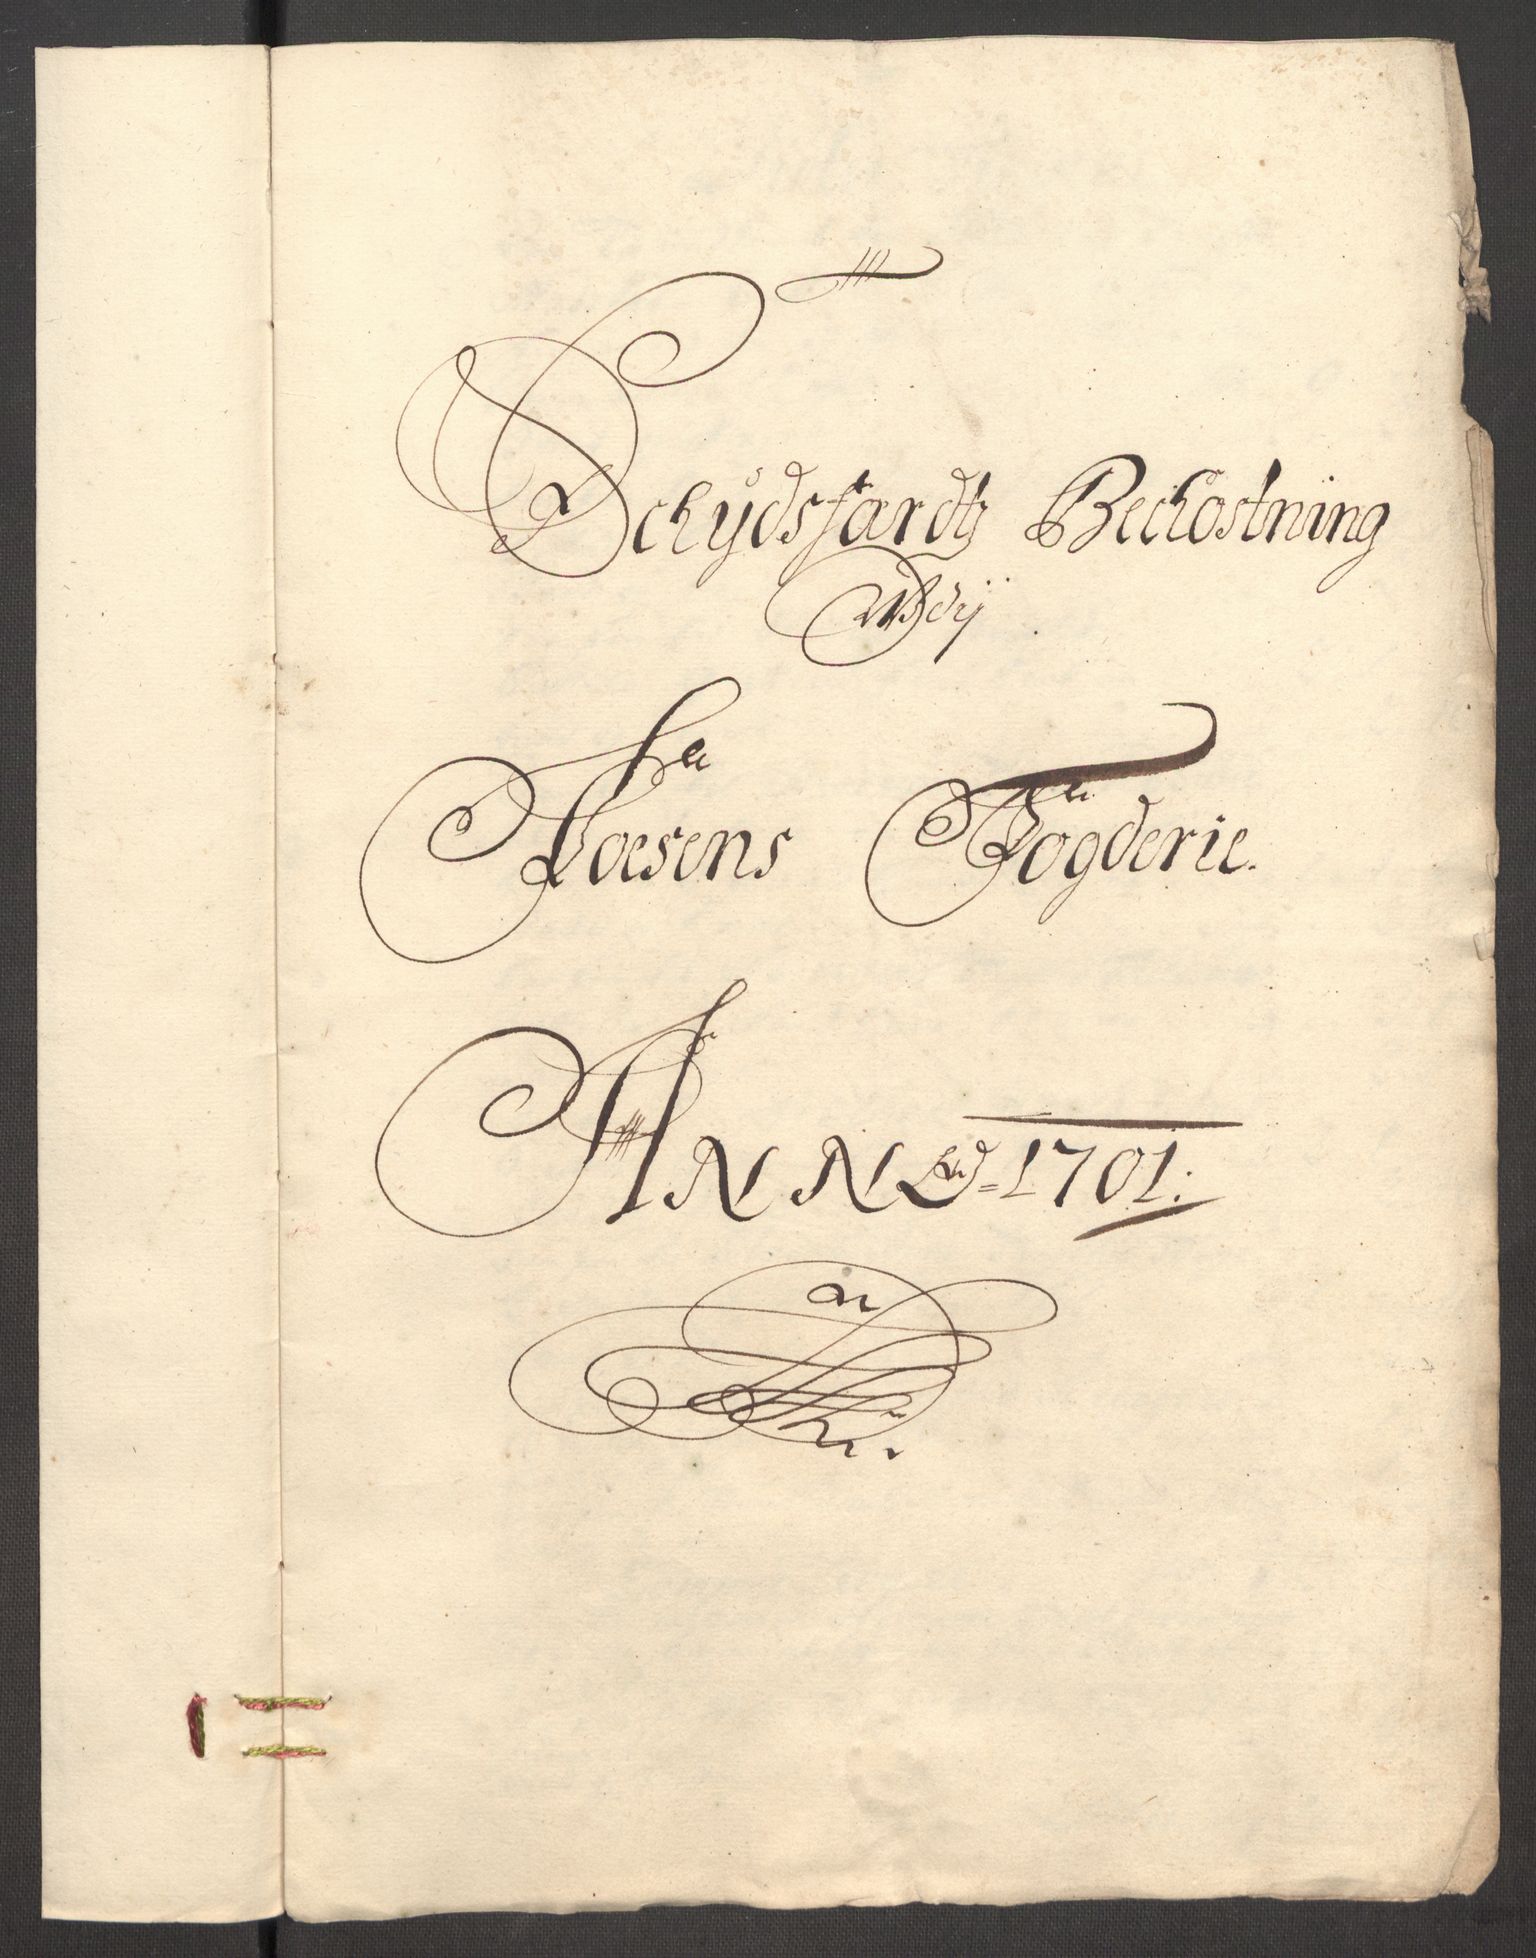 Schydsfærdtz Bechostning
Udj
Foesens Fogderie.
ANNO = 1701.